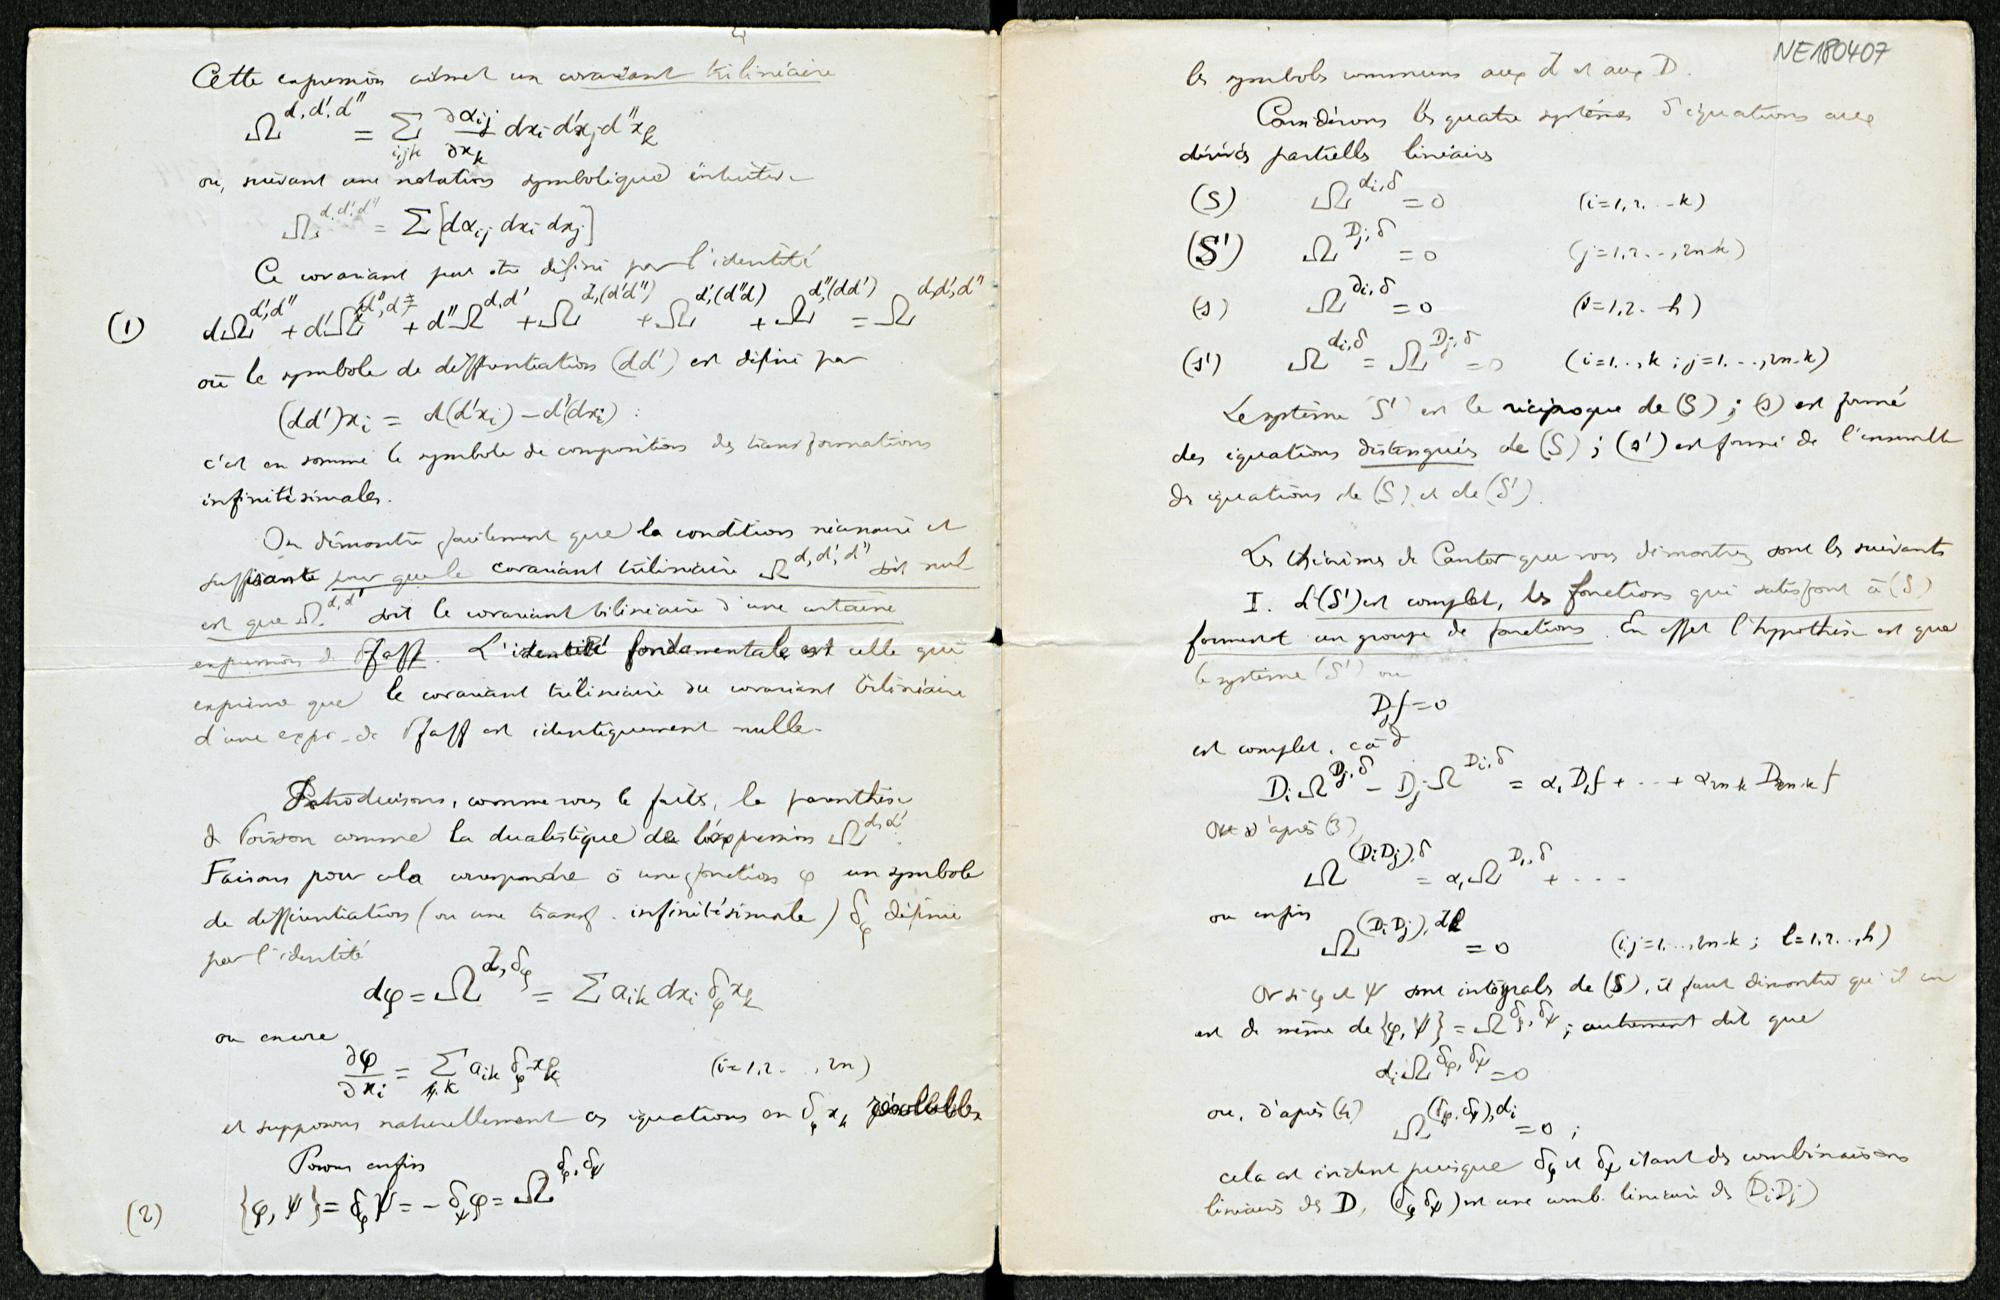 Cette expression admet un covariant trilinéaire
Ω^{d,d',d''} = Σ_{ijk} ∂α_{ij}/∂x_k dx_i d'x_j d''x_k
ou, suivant une notation symbolique intuitive
Ω^{d,d',d''} = Σ[dα_{ij} dx_i dx_j]
Ce covariant peut être défini par l'identité
(1) dΩ^{d',d''} + d'Ω^{d'',d} + d''Ω^{d,d'} + Ω^{d,(d'd'')} + Ω^{d',(d''d)} + Ω^{d'',(dd')} = Ω^{d,d',d''}
où le symbole de différentiation (dd') est défini par
(dd')x_i = d(d'x_i) – d'(dx_i) :
c'est en somme le symbole de composition des transformations
infinitésimales.
On démontre facilement que la condition nécessaire et
suffisante pour que le covariant trilinéaire Ω^{d,d',d''} soit nul
est que Ω^{d,d'} soit le covariant bilinéaire d'une certaine
expression de Pfaff. L'identité fondamentale est celle qui
exprime que le covariant trilinéaire du covariant bilinéaire
d'une expr. de Pfaff est identiquement nulle.
Introduisons, comme vous le faites, la parenthèse
de Poisson comme la dualistique de l'expression Ω^{d,d'}.
Faisons pour cela correspondre à une fonction φ un symbole
de différentiation (ou une transf. infinitésimale) δ_φ définie
par l'identité
dφ = Ω^{d,δ_φ} = Σ a_{ik} dx_i δ_φ x_k
ou encore
∂φ/∂x_i = Σ_k a_{ik} δ_φ x_k (i=1,2..., 2n)
et supposons naturellement ces équations en δ_φ x_k résolubles
Posons enfin
(2) {φ, ψ} = δ_φ ψ = – δ_ψ φ = Ω^{δ_φ, δ_ψ}
NE180407
les symboles communs aux d et aux D.
Considérons les quatre systèmes d'équations aux
dérivées partielles linéaires
(S) Ω^{d_i,δ} = 0 (i=1,2...k)
(S') Ω^{D_j,δ} = 0 (j=1,2...,2n-k)
(s) Ω^{∂_i,δ} = 0 (i=1,2..h)
(s') Ω^{d_i,δ} = Ω^{D_j,δ} = 0 (i=1..,k ; j=1...,2n-k)
Le système (S') est le réciproque de (S) ; (s) est formé
des équations distinguées de (S) ; (s') est formé de l'ensemble
des équations de (S) et de (S').
Les théorèmes de Cantor que vous démontrez sont les suivants
I. Si (S') est complet, les fonctions qui satisfont à (S)
forment un groupe de fonctions. En effet l'hypothèse est que
le système (S') ou
D_j f = 0
est complet, c à d
D_i Ω^{D_j,δ} – D_j Ω^{D_i,δ} = α_1 D_1 f + ... + α_{2n-k} D_{2n-k} f
Or d'après (3)
Ω^{(D_i D_j),δ} = α_1 Ω^{D_1,δ} + ...
ou enfin
Ω^{(D_i D_j),d_l} = 0 (i,j=1...,2n-k ; l=1,2..,h)
Or si φ et ψ sont intégrales de (S), il faut démontrer qu'il en
est de même de {φ,ψ} = Ω^{δ_φ,δ_ψ} ; autrement dit que
d_i Ω^{δ_φ,δ_ψ} = 0
ou, d'après (4)
Ω^{(δ_φ,δ_ψ),d_i} = 0 ;
cela est évident puisque δ_φ et δ_ψ étant des combinaisons
linéaires des D, (δ_φ δ_ψ) est une comb. linéaire des (D_i D_j)